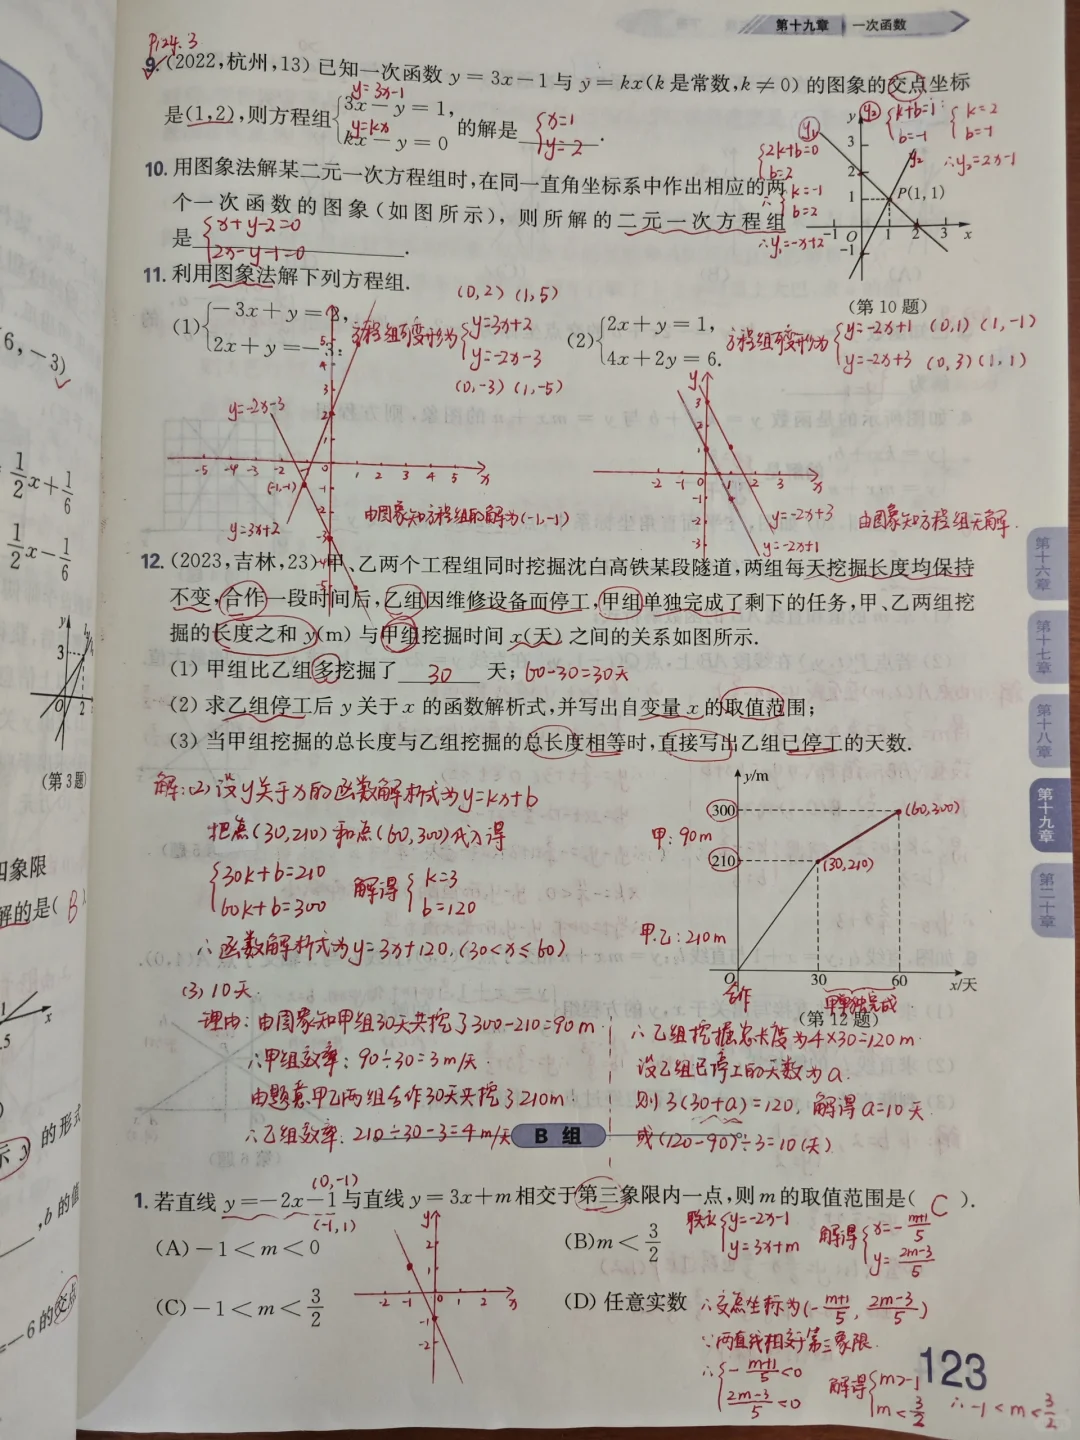 第十九章 一次函数
P124.3
9. (2022,杭州,13) 已知一次函数 y=3x-1 与 y=kx(k 是常数,k≠0) 的图象的交点坐标
y=3x-1
是(1,2),则方程组{3x-y=1, kx-y=0 的解是 {x=1 y=2 .
y=kx
10. 用图象法解某二元一次方程组时,在同一直角坐标系中作出相应的两
个一次函数的图象(如图所示),则所解的二元一次方程组
是 {x+y-2=0 2x-y-1=0 .
{2k+b=0 b=2
∴{k=-1 b=2
∴y₁=-x+2
y₂ {k+b=1 b=-1 {k=2 b=-1
∴y₂=2x-1
y₁
y₂
P(1,1)
(第 10 题)
11. 利用图象法解下列方程组.
(0,2) (1,5)
(1){-3x+y=2, 2x+y=-3; 方程组可变形为{y=3x+2 y=-2x-3
(0,-3) (1,-5)
(2){2x+y=1, 4x+2y=6. 方程组可变形为{y=-2x+1 (0,1) (1,-1) y=-2x+3 (0,3) (1,1)
y=-2x-3
(-1,-1)
y=3x+2
由图象知方程组的解为(-1,-1)
y=-2x+3
y=-2x+1
由图象知方程组无解.
12. (2023,吉林,23) 甲、乙两个工程组同时挖掘沈白高铁某段隧道,两组每天挖掘长度均保持
不变,合作一段时间后,乙组因维修设备而停工,甲组单独完成了剩下的任务,甲、乙两组挖
掘的长度之和 y(m) 与甲组挖掘时间 x(天) 之间的关系如图所示.
(1) 甲组比乙组多挖掘了 30 天; 60-30=30天
(2) 求乙组停工后 y 关于 x 的函数解析式,并写出自变量 x 的取值范围;
(3) 当甲组挖掘的总长度与乙组挖掘的总长度相等时,直接写出乙组已停工的天数.
解:(2)设y关于x的函数解析式为y=kx+b
把点(30,210)和点(60,300)代入得
{30k+b=210 60k+b=300 解得{k=3 b=120
∴函数解析式为y=3x+120.(30<x≤60)
(3) 10天.
理由:由图象知甲组30天共挖了300-210=90m
∴甲组效率:90÷30=3m/天.
由题意甲乙两组合作30天共挖了210m
∴乙组效率:210÷30-3=4m/天
y/m
300
(60,300)
甲:90m
210
(30,210)
甲.乙:210m
O 30 60 x/天
合作 甲单独完成
(第 12 题)
∴乙组挖掘总长度为4×30=120m
设乙组已停工的天数为a.
则3(30+a)=120, 解得a=10天
或(120-90)÷3=10(天)
B 组
(0,-1)
1. 若直线 y=-2x-1 与直线 y=3x+m 相交于第三象限内一点,则 m 的取值范围是( C ).
(-1,1)
(A) -1<m<0
(B) m<3/2
(C) -1<m<3/2
(D) 任意实数
联立{y=-2x-1 y=3x+m 解得{x=-(m+1)/5 y=(2m-3)/5
∴交点坐标为(-(m+1)/5, (2m-3)/5)
∵两直线相交于第三象限.
∴{-(m+1)/5<0 (2m-3)/5<0 解得{m>-1 m<3/2 ∴-1<m<3/2
123
第十六章
第十七章
第十八章
第十九章
第二十章
6,-3)
1/2x+1/6
1/2x-1/6
(第 3 题)
四象限
解的是( B )
的形式
,b 的值
-6 的交点